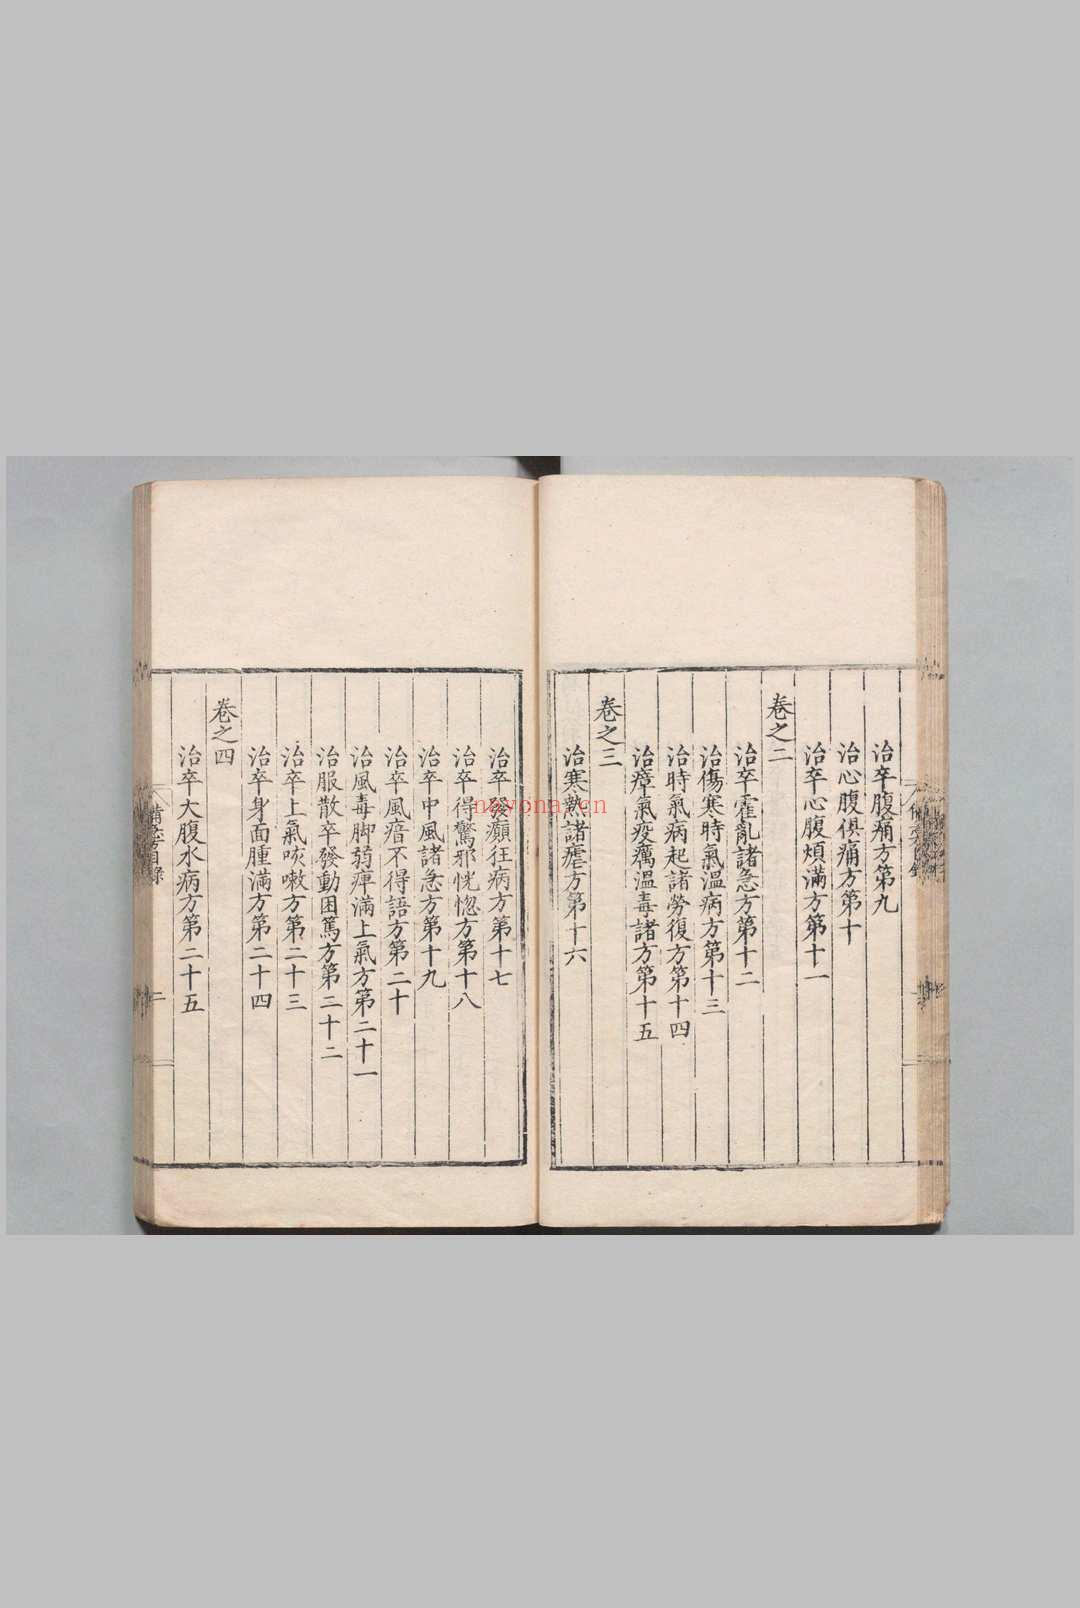 治卒腹痛方第九
治心腹俱痛方第十
治卒心腹煩滿方第十一
卷之二
治卒霍亂諸急方第十二
治傷寒時氣溫病方第十三
治時氣病起諸勞復方第十四
治瘴氣疫癘溫毒諸方第十五
卷之三
治寒熱諸瘧方第十六
治卒發癲狂病方第十七
治卒得驚邪恍惚方第十八
治卒中風諸急方第十九
治卒風瘖不得語方第二十
治風毒脚弱痺滿上氣方第二十一
治服散卒發動困篤方第二十二
治卒上氣咳嗽方第二十三
治卒身面腫滿方第二十四
卷之四
治卒大腹水病方第二十五
目錄
二
nayona.cn